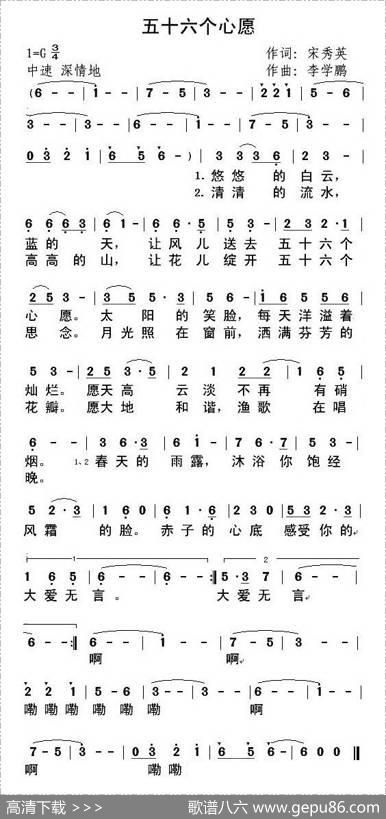 五十六个心愿
1=G 3/4 作词：宋秀英
中速 深情地 作曲：李学鹏
(6 - - | 1 - - | 7 - 5 | 3 - - | 2 2 1 | 5 - - |
3 - - | 3 - - | 6 - - | 1 - - | 7 - 5 | 3 - - |
0 3 2 1 | 6 5 6 - ) | 3 - - | 3 3 3 6 | 2 3 - |
1. 悠悠 的 白云，
2. 清清 的 流水，
6 6 6 3 | 6 1 - | 6 6 · 5 | 5 3 - | 2 3 2 · 1 |
蓝的 天， 让风儿 送去 五十六个
高高的山， 让花儿 绽开 五十六个
2 5 3 - | 3 5 5 · 3 | 5 6 - | 1 6 5 5 6 |
心愿。 太阳的 笑脸， 每天洋溢着
思念。 月光照在 窗前， 洒满芬芳的
5 3 - | 2 5 3 · 5 | 2 1 2 | 2 2 - | 1 6 5 |
灿烂。 愿天高 云淡 不再 有硝
花瓣。 愿大地 和谐， 渔歌 在唱
6 - - | 3 6 · 3 | 6 i - | 7 6 · 7 | 5 3 - |
烟。 1、2 春天的 雨露， 沐浴你 饱经
晚。
5 2 · 3 | 1 6 0 | 6 1 6 · | 2 3 0 | 5 3 2 · 3 |
风霜 的脸。 赤子的 心底 感受你的
1.
2.
1 6 5 | 6 - - | 6 - - :| 5 · 3 7 | 6 - - |
大爱无言。 大爱无言
6 - - :| 6 - - | 1 - - | 7 - 5 | 3 - - |
啊 啊
2 2 1 | 5 - - | 3 - - | 3 - - | 6 - - | 1 - - |
嘞嘞嘞 嘞 嘞 啊
7 - 5 | 3 - - | 0 3 2 1 | 6 5 6 - | 6 - - ||
啊 嘞嘞
高清下载 >>> 歌谱八六 www.gepu86.com